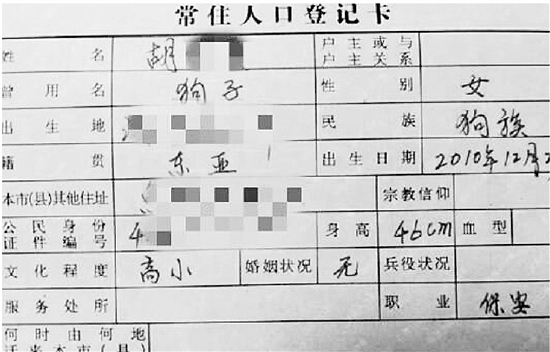 常住人口登记卡
姓名 胡 户主或与户主关系
曾用名 狗子 性别 女
出生地 民族 狗族
籍贯 东亚 出生日期 2010年12月2
本市(县)其他住址 宗教信仰
公民身份证件编号 4 身高 46cm 血型
文化程度 高小 婚姻状况 无 兵役状况
服务处所 职业 保安
何时由何地
迁来本市(县)